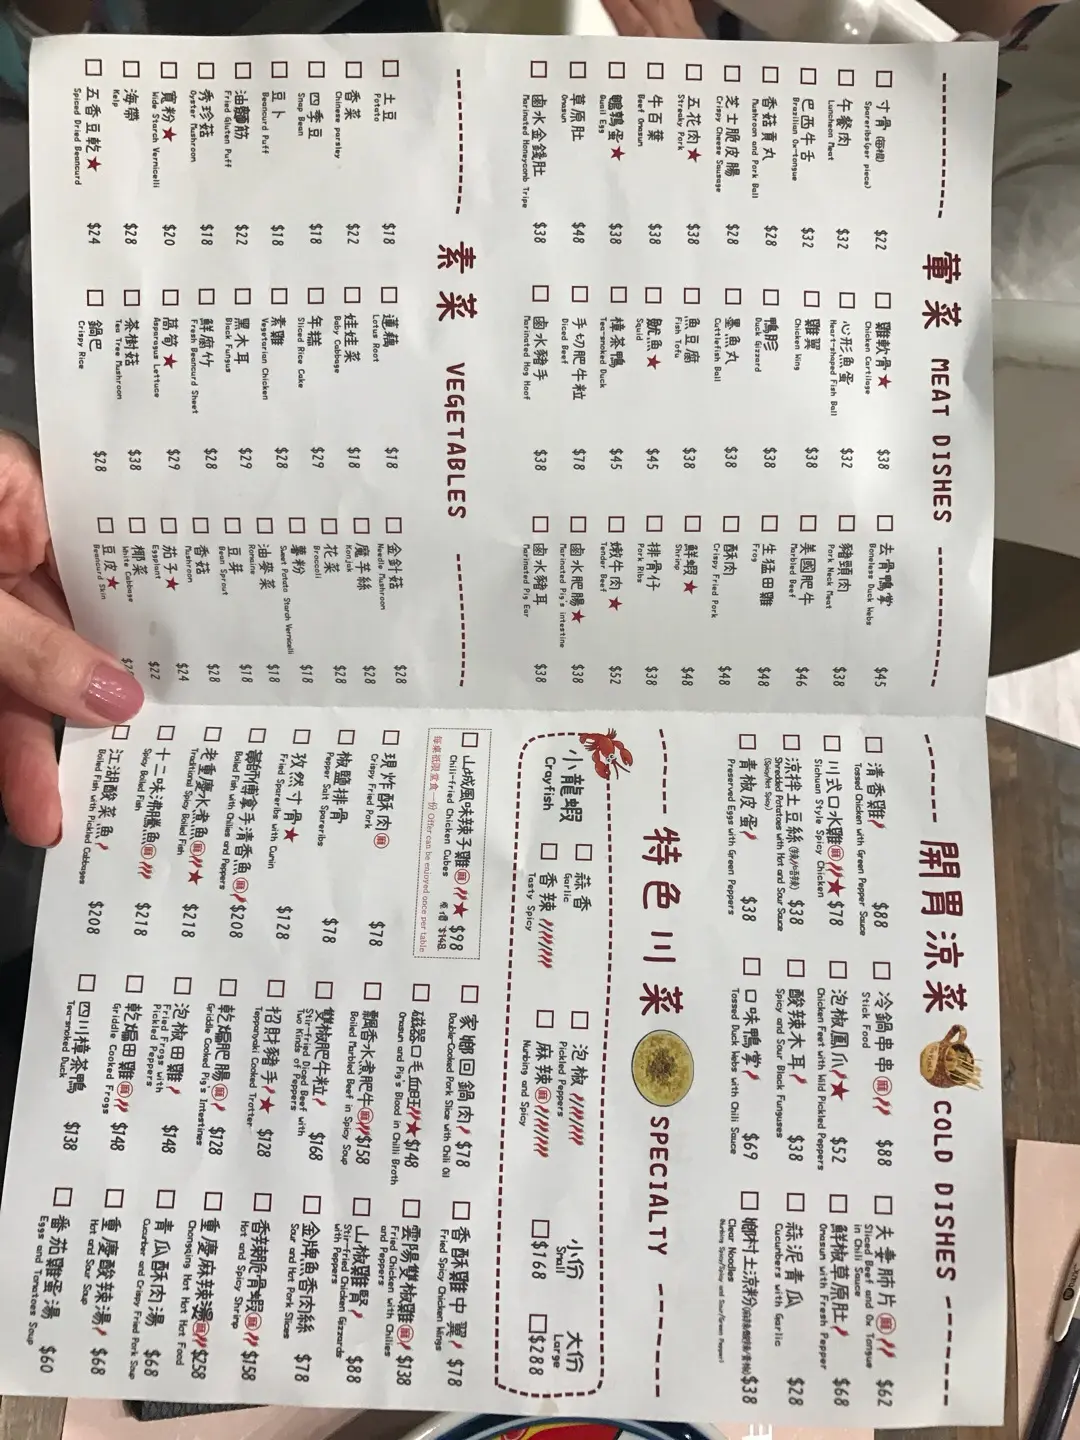 葷菜 MEAT DISHES
寸骨 (每根) $22
Spareribs(per piece)
午餐肉 $32
Luncheon Meat
巴西牛舌 $32
Brazilian Ox-tongue
香菇貢丸 $28
Mushroom and Pork Ball
芝士脆皮腸 $28
Crispy Cheese Sausage
五花肉★ $38
Streaky Pork
牛百葉 $38
Beef Omasun
鵪鶉蛋★ $38
Quail Egg
草原肚 $48
Omasun
鹵水金錢肚 $38
Marinated Honeycomb Tripe
雞軟骨★ $38
Chicken Cartilage
心形魚蛋 $32
Heart-shaped Fish Ball
雞翼 $38
Chicken Wing
鴨胗 $38
Duck Gizzard
墨魚丸 $38
Cuttlefish Ball
魚豆腐 $38
Fish Tofu
魷魚★ $45
Squid
樟茶鴨 $45
Tea-smoked Duck
手切肥牛粒 $78
Diced Beef
鹵水豬手 $38
Marinated Hog Hoof
去骨鴨掌 $45
Boneless Duck Webs
豬頸肉 $38
Pork Neck Meat
美國肥牛 $46
Marbled Beef
生猛田雞 $48
Frog
酥肉 $48
Crispy Fried Pork
鮮蝦★ $48
Shrimp
排骨仔 $38
Pork Ribs
嫩牛肉★ $52
Tender Beef
鹵水肥腸★ $38
Marinated Pig's intestine
鹵水豬耳 $38
Marinated Pig Ear
素菜 VEGETABLES
土豆 $18
Potato
香菜 $22
Chinese parsley
四季豆 $18
Snap Bean
豆卜 $18
Beancurd Puff
油麵筋 $22
Fried Gluten Puff
秀珍菇 $18
Oyster Mushroom
寬粉★ $20
Wide Starch Vermicelli
海帶 $28
Kelp
五香豆乾★ $24
Spiced Dried Beancurd
蓮藕 $18
Lotus Root
娃娃菜 $18
Baby Cabbage
年糕 $29
Sliced Rice Cake
素雞 $28
Vegetarian Chicken
黑木耳 $29
Black Fungus
鮮腐竹 $28
Fresh Beancurd Sheet
萵筍★ $29
Asparagus Lettuce
茶樹菇 $38
Tea Tree Mushroom
鍋巴 $28
Crispy Rice
金針菇 $28
Needle Mushroom
魔芋絲 $28
Konjak
花菜 $28
Broccoli
薯粉 $18
Sweet Potato Starch Vermicelli
油麥菜 $18
Romaine
豆芽 $18
Bean Sprout
香菇 $28
Mushroom
茄子★ $24
Eggplant
椰菜 $22
White Cabbage
豆皮★
Beancurd Skin
開胃涼菜 COLD DISHES
清香雞 $88
Tossed Chicken with Green Pepper Sauce
川式口水雞(麻)★ $78
Sichuan Style Spicy Chicken
涼拌土豆絲 (辣/不辣) $38
Shredded Potatoes with Hot and Sour Sauce
(Spicy/Not Spicy)
青椒皮蛋 $38
Preserved Eggs with Green Peppers
冷鍋串串(麻) $88
Stick Food
泡椒鳳爪★ $52
Chicken Feet with Wild Pickled Peppers
酸辣木耳 $38
Spicy and Sour Black Funguses
口味鴨掌 $69
Tossed Duck Webs with Chili Sauce
夫妻肺片(麻) $62
Sliced Beef and Ox Tongue
in Chili Sauce
鮮椒草原肚 $68
Omasun with Fresh Pepper
蒜泥青瓜 $28
Cucumbers with Garlic
鄉村土涼粉 $38
Clear Noodles
特色川菜 SPECIALTY
小龍蝦
Crayfish
蒜香
Garlic
香辣
Tasty Spicy
泡椒
Pickled Peppers
麻辣(麻)
Numbing and Spicy
小份
Small
$168
大份
Large
$288
山城風味辣子雞(麻)★ $98
Chili-fried Chicken Cubes 原價 $148
每桌祇限食一份 Offer can be enjoyed once per table
現炸酥肉(麻) $78
Crispy Fried Pork
椒鹽排骨 $78
Pepper Salt Spareribs
孜然寸骨★ $128
Fried Spareribs with Cumin
鄭師傅拿手清香魚(麻) $208
Boiled Fish with Chilies and Peppers
老重慶水煮魚(麻)★ $218
Traditional Spicy Boiled Fish
十二味沸騰魚(麻) $218
Spicy Boiled Fish
江湖酸菜魚 $208
Boiled Fish with Pickled Cabbages
家鄉回鍋肉 $78
Double-Cooked Pork Slice with Chili Oil
磁器口毛血旺★ $148
Omasun and Pig's Blood in Chilli Broth
飄香水煮肥牛(麻) $158
Boiled Marbled Beef in Spicy Soup
雙椒肥牛粒 $168
Stir-fried Diced Beef with
Two Kinds of Peppers
招財豬手★ $128
Teppanyaki Cooked Trotter
乾煸肥腸(麻) $128
Griddle Cooked Pig's Intestines
泡椒田雞 $148
Fried Frogs with
Pickled Peppers
乾煸田雞(麻) $148
Griddle Cooked Frogs
四川樟茶鴨 $138
Tea-smoked Duck
香酥雞中翼 $78
Fried Spicy Chicken Wings
雲陽雙椒雞(麻) $138
Fried Chicken with Chilies
and Peppers
山椒雞腎 $88
Stir-fried Chicken Gizzards
with Peppers
金牌魚香肉絲 $78
Sour and Hot Pork Slices
香辣脆骨蝦(麻) $158
Hot and Spicy Shrimp
重慶麻辣燙(麻) $258
Chongqing Hot Hot Hot Food
青瓜酥肉湯 $68
Cucumber and Crispy Fried Pork Soup
重慶酸辣湯 $68
Hot and Sour Soup
番茄雞蛋湯 $60
Eggs and Tomatoes Soup